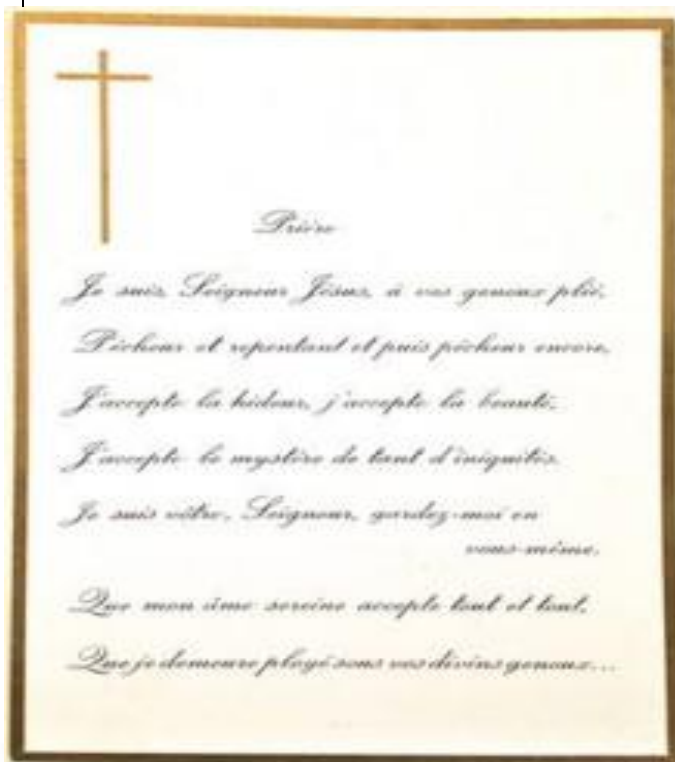 Prière
Je suis, Seigneur Jésus, à vos genoux plié,
Pêcheur et repentant et puis pêcheur encore,
J'accepte la hideur, j'accepte la beauté,
J'accepte le mystère de tant d'iniquités.
Je suis vôtre, Seigneur, gardez-moi en
vous-même,
Que mon âme sereine accepte tout et tout,
Que je demeure ployé sous vos divins genoux...